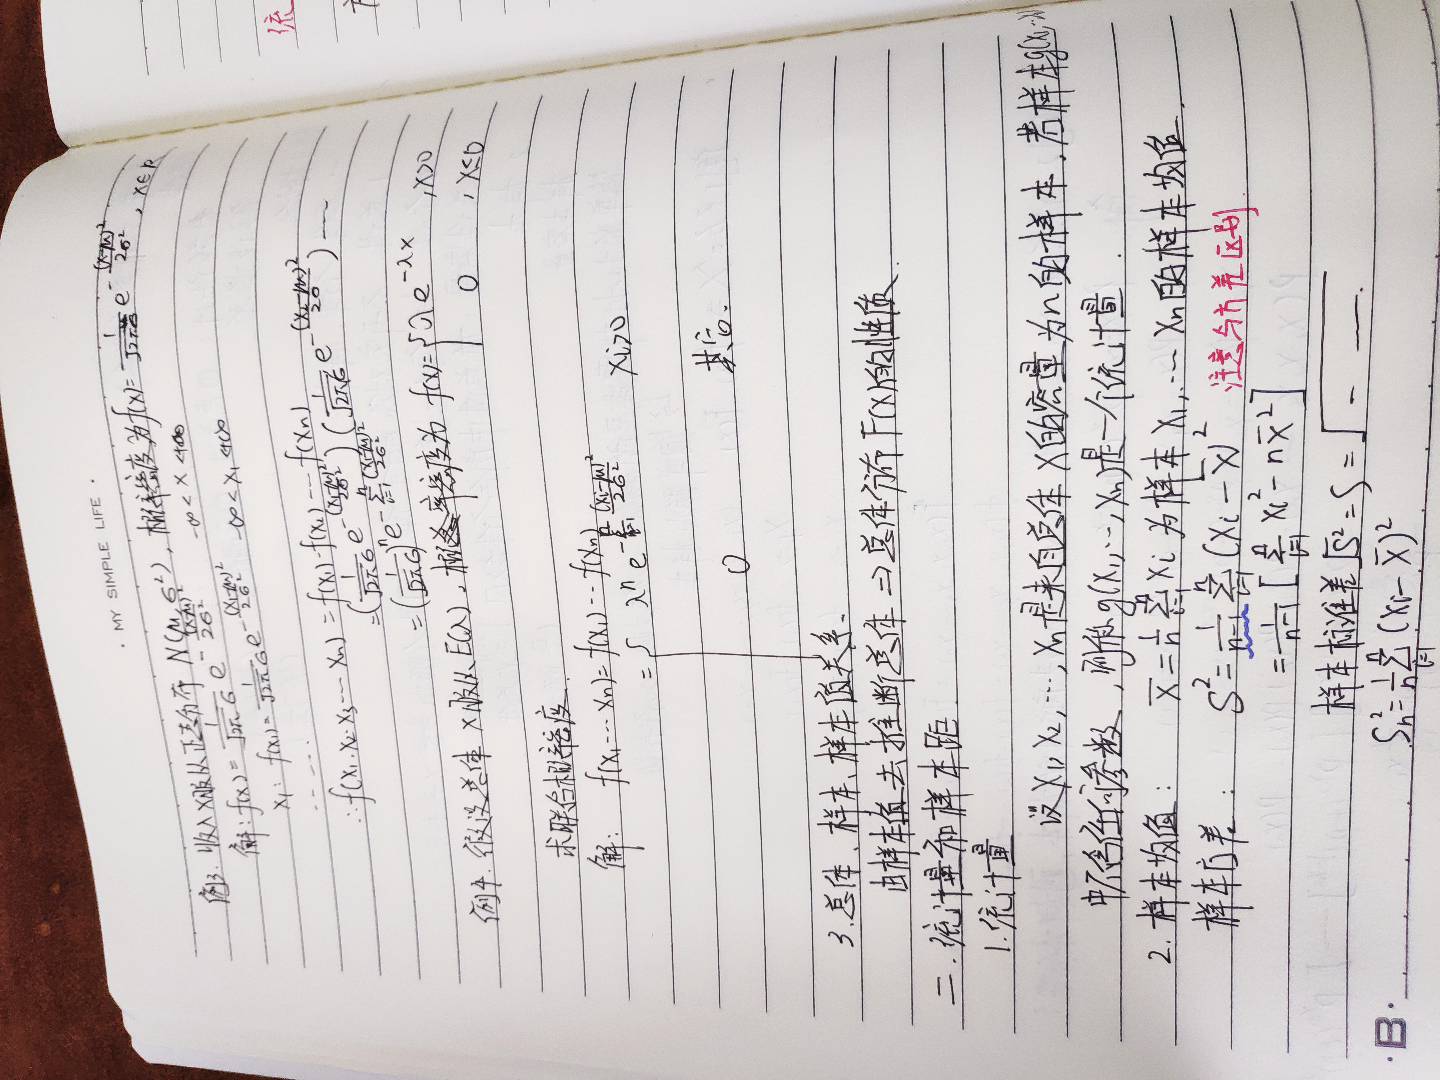 · MY SIMPLE LIFE ·
例3. 收入X服从正态分布 N(μ, σ²), 概率密度为f(x)= 1/√2πσ e^-(x-μ)²/2σ², x∈R
解: f(x) = 1/√2π σ e^-(x-μ)²/2σ² -∞ < x < +∞
x₁: f(x₁)= 1/√2π σ e^-(x₁-μ)²/2σ² -∞ < x₁ < +∞
... ...
∴ f(x₁.x₂.x₃ ... xₙ) = f(x₁)·f(x₂) ... f(xₙ)
= (1/√2π σ e^-(x₁-μ)²/2σ²) (1/√2π σ e^-(x₂-μ)²/2σ) ...
= (1/√2π σ)ⁿ e^-∑ᵢ₌₁ⁿ (xᵢ-μ)²/2σ²
例4. 假设总体 X服从 E(λ), 概率密度为 f(x)= { λe^-λx , x>0
0 , x≤0
求联合概率密度.
解: f(x₁ ... xₙ)= f(x₁) ... f(xₙ)
= { λⁿ e^-∑ᵢ₌₁ⁿ (xᵢ-μ)²/2σ² xᵢ>0
0 其它.
3. 总体、样本、样本值关系.
由样本值去推断总体 ⇒ 总体分布 F(x)的性质.
二. 统计量和样本距.
1. 统计量
设X₁, X₂, ..., Xₙ是来自总体 X的容量为n的样本, 若样本g(x₁, ...x
中不含任何参数, 则称g(x₁, ..., xₙ)是一个统计量.
2. 样本均值: X̄ = 1/n ∑ᵢ₌₁ⁿ Xᵢ 为样本 X₁, ... Xₙ的样本均值.
样本方差: S² = 1/n-1 ∑ᵢ₌₁ⁿ (Xᵢ - X̄)² 注意与方差区别
= 1/n-1 [∑ᵢ₌₁ⁿ Xᵢ² - nX̄²]
样本标准差 √S² = S = √ — —.
Sₙ² = 1/n ∑ᵢ₌₁ⁿ (Xᵢ - X̄)²
·B·
统